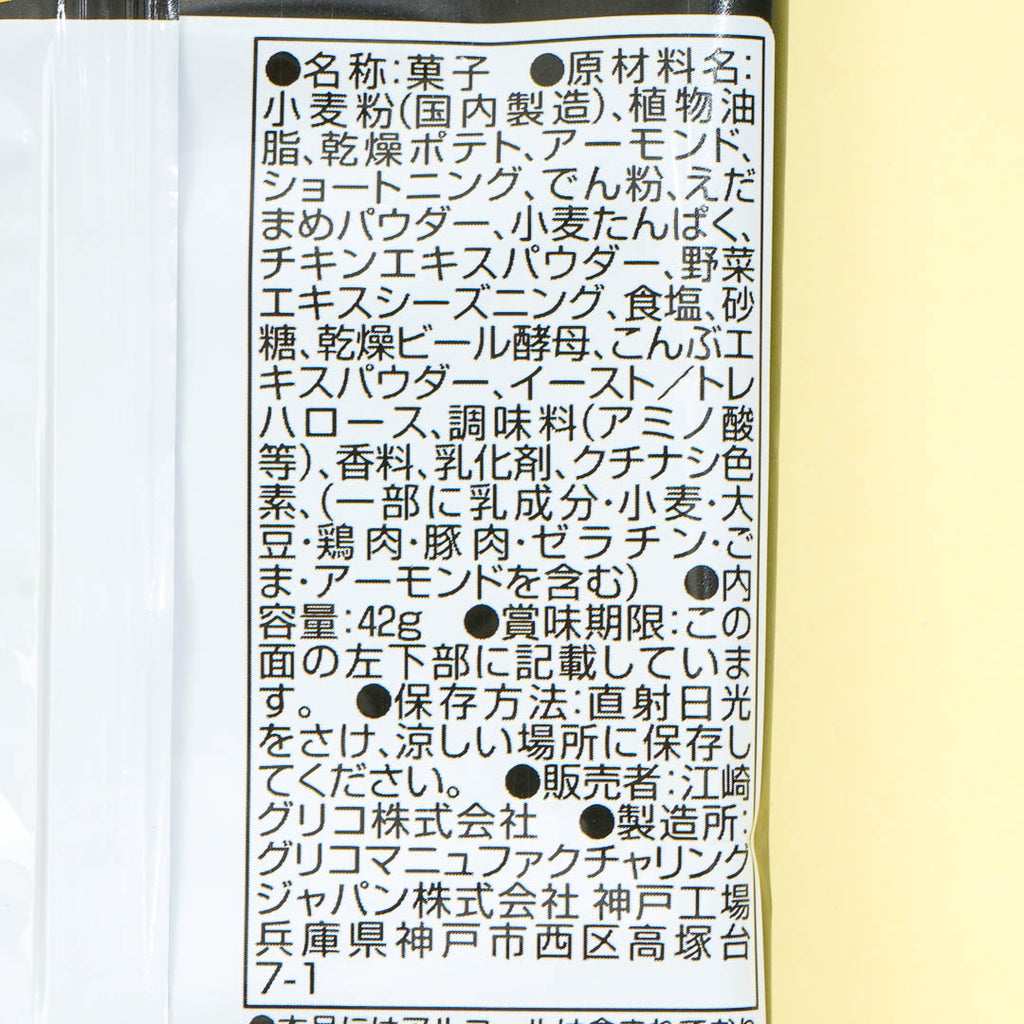 ●名称:菓子 ●原材料名:
小麦粉(国内製造)、植物油
脂、乾燥ポテト、アーモンド、
ショートニング、でん粉、えだ
まめパウダー、小麦たんぱく、
チキンエキスパウダー、野菜
エキスシーズニング、食塩、砂
糖、乾燥ビール酵母、こんぶエ
キスパウダー、イースト/トレ
ハロース、調味料(アミノ酸
等)、香料、乳化剤、クチナシ色
素、(一部に乳成分・小麦・大
豆・鶏肉・豚肉・ゼラチン・ご
ま・アーモンドを含む) ●内
容量:42g ●賞味期限:この
面の左下部に記載していま
す。 ●保存方法:直射日光
をさけ、涼しい場所に保存し
てください。 ●販売者:江崎
グリコ株式会社 ●製造所:
グリコマニュファクチャリング
ジャパン株式会社 神戸工場
兵庫県神戸市西区高塚台
7-1